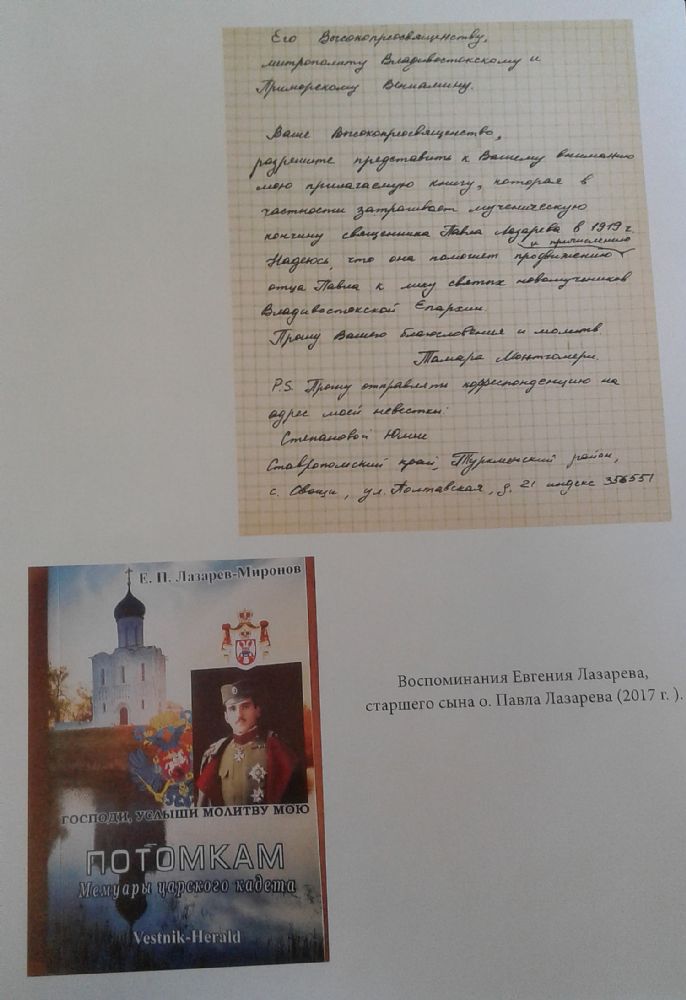 Его Высокопреосвященству,
митрополиту Владивостокскому и
Приморскому Вениамину.
Ваше Высокопреосвященство,
разрешите представить к Вашему вниманию
мою прилагаемую книгу, которая в
частности затрагивает мученическую
кончину священника Павла Лазарева в 1919 г.
и причислению
Надеюсь, что она поможет продвижению
отца Павла к лику святых новомучеников
Владивостокской Епархии.
Прошу Вашего благословения и молитв
Тамара Монтгомери.
P.S. Прошу отправлять корреспонденцию на
адрес моей невестки:
Степановой Юлии
Ставропольский край, Туркменский район,
с. Овощи, ул. Полтавская, д. 21 индекс 356551
Е. П. Лазарев-Миронов
ГОСПОДИ, УСЛЫШИ МОЛИТВУ МОЮ
ПОТОМКАМ
Мемуары царского кадета
Vestnik-Herald
Воспоминания Евгения Лазарева,
старшего сына о. Павла Лазарева (2017 г. ).